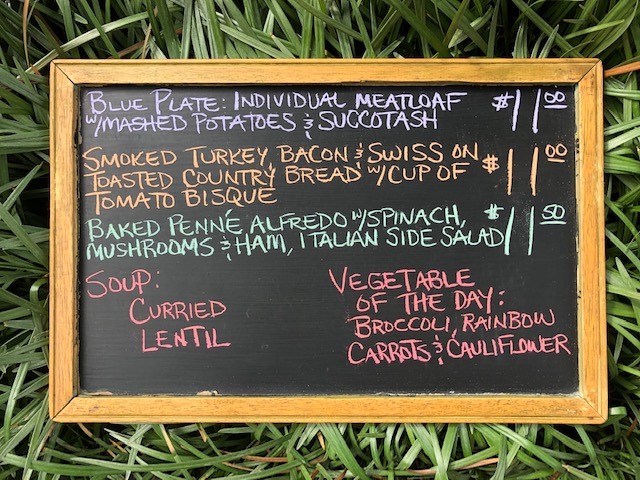 BLUE PLATE: INDIVIDUAL MEATLOAF $11.00
W/MASHED POTATOES & SUCCOTASH
SMOKED TURKEY, BACON & SWISS ON $11.00
TOASTED COUNTRY BREAD W/CUP OF
TOMATO BISQUE
BAKED PENNÉ ALFREDO W/SPINACH, $11.50
MUSHROOMS & HAM, ITALIAN SIDE SALAD
SOUP:
CURRIED
LENTIL
VEGETABLE
OF THE DAY:
BROCCOLI, RAINBOW
CARROTS & CAULIFLOWER